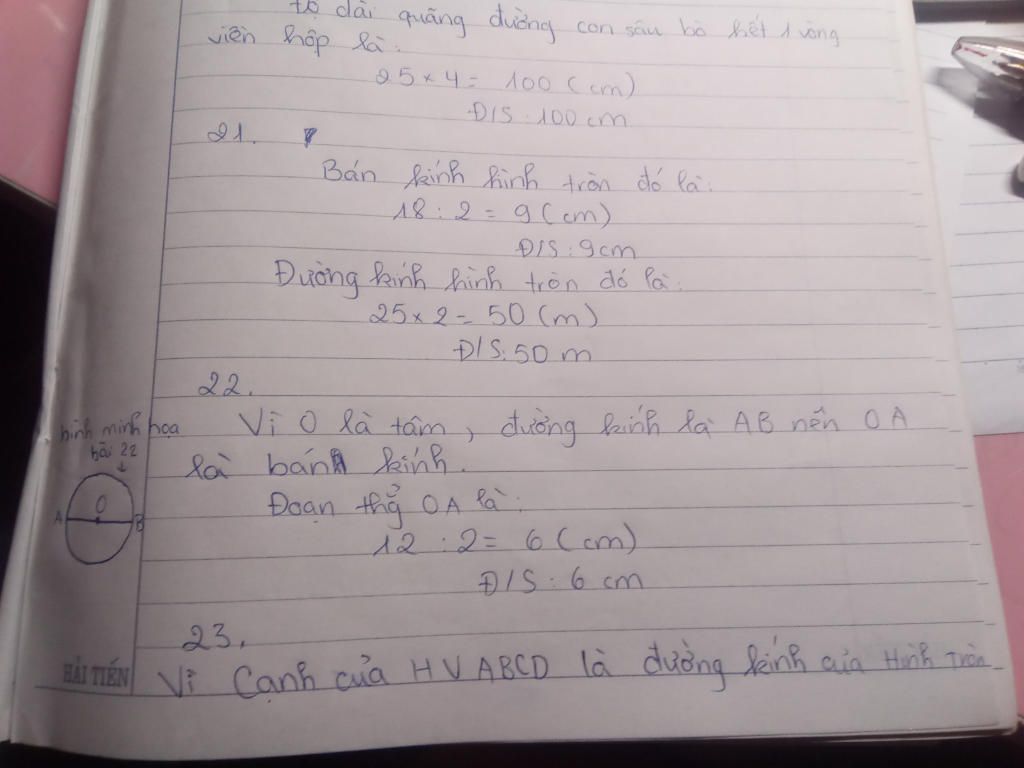 độ dài quãng đường con sâu bò hết 1 vòng
viền hộp là:
25 × 4 = 100 (cm)
Đ/S: 100 cm
21.
Bán kính hình tròn đó là:
18 : 2 = 9 (cm)
Đ/S: 9cm
Đường kính hình tròn đó là:
25 × 2 = 50 (m)
Đ/S: 50 m
22.
Vì O là tâm, đường kính là AB nên OA
là bán kính.
hình minh họa
bài 22
O
A B
Đoạn thẳng OA là:
12 : 2 = 6 (cm)
Đ/S: 6 cm
23.
Vì Cạnh của HV ABCD là đường kính của Hình Tròn
HẢI TIẾN